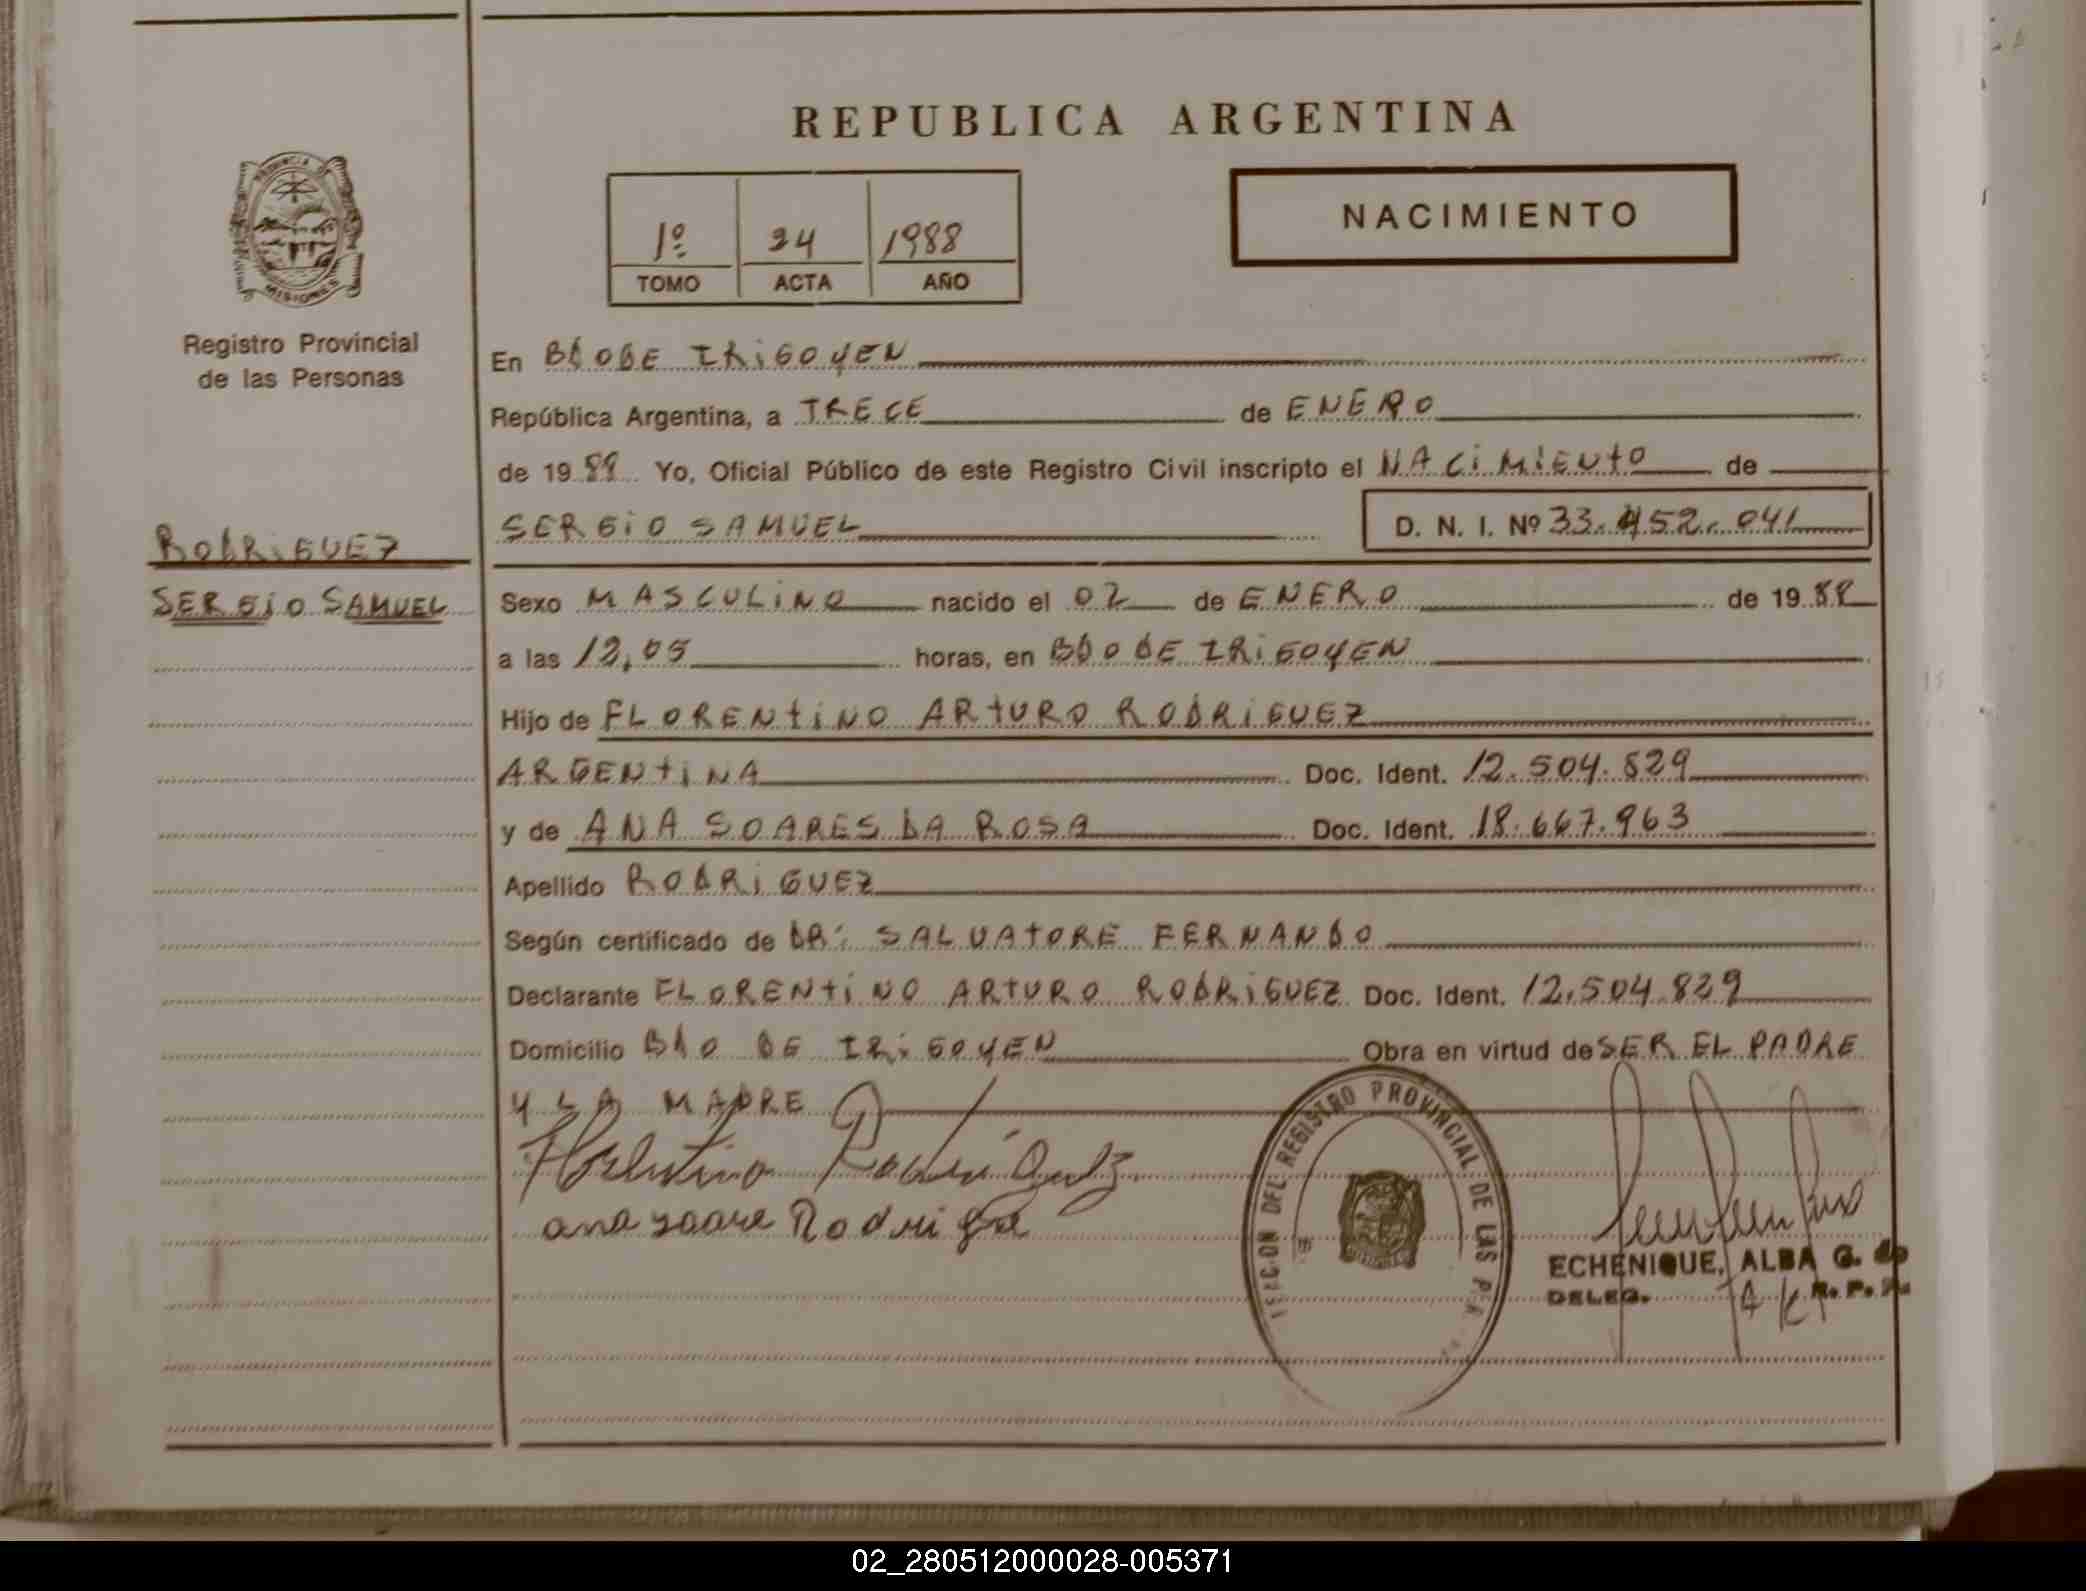 REPUBLICA ARGENTINA
PROVINCIA DE
MISIONES
Registro Provincial
de las Personas
RODRIGUEZ
SERGIO SAMUEL
1º 24 1988
TOMO ACTA AÑO
NACIMIENTO
En BDO DE IRIGOYEN
República Argentina, a TRECE de ENERO
de 1988 Yo, Oficial Público de este Registro Civil inscripto el NACIMIENTO de
SERGIO SAMUEL D. N. I. Nº 33.452.041
Sexo MASCULINO nacido el 02 de ENERO de 1988
a las 12,05 horas, en BDO DE IRIGOYEN
Hijo de FLORENTINO ARTURO RODRIGUEZ
ARGENTINA Doc. Ident. 12.504.829
y de ANA SOARES DA ROSA Doc. Ident. 18.667.963
Apellido RODRIGUEZ
Según certificado de DR: SALVATORE FERNANDO
Declarante FLORENTINO ARTURO RODRIGUEZ Doc. Ident. 12.504.829
Domicilio BDO DE IRIGOYEN Obra en virtud de SER EL PADRE
Y LA MADRE
Florentino Rodriguez
ana soare Rodrigue
DEL REGISTRO PROVINCIAL DE LAS
ECHENIQUE, ALBA G. de
DELEG. R. P. P.
02_280512000028-005371